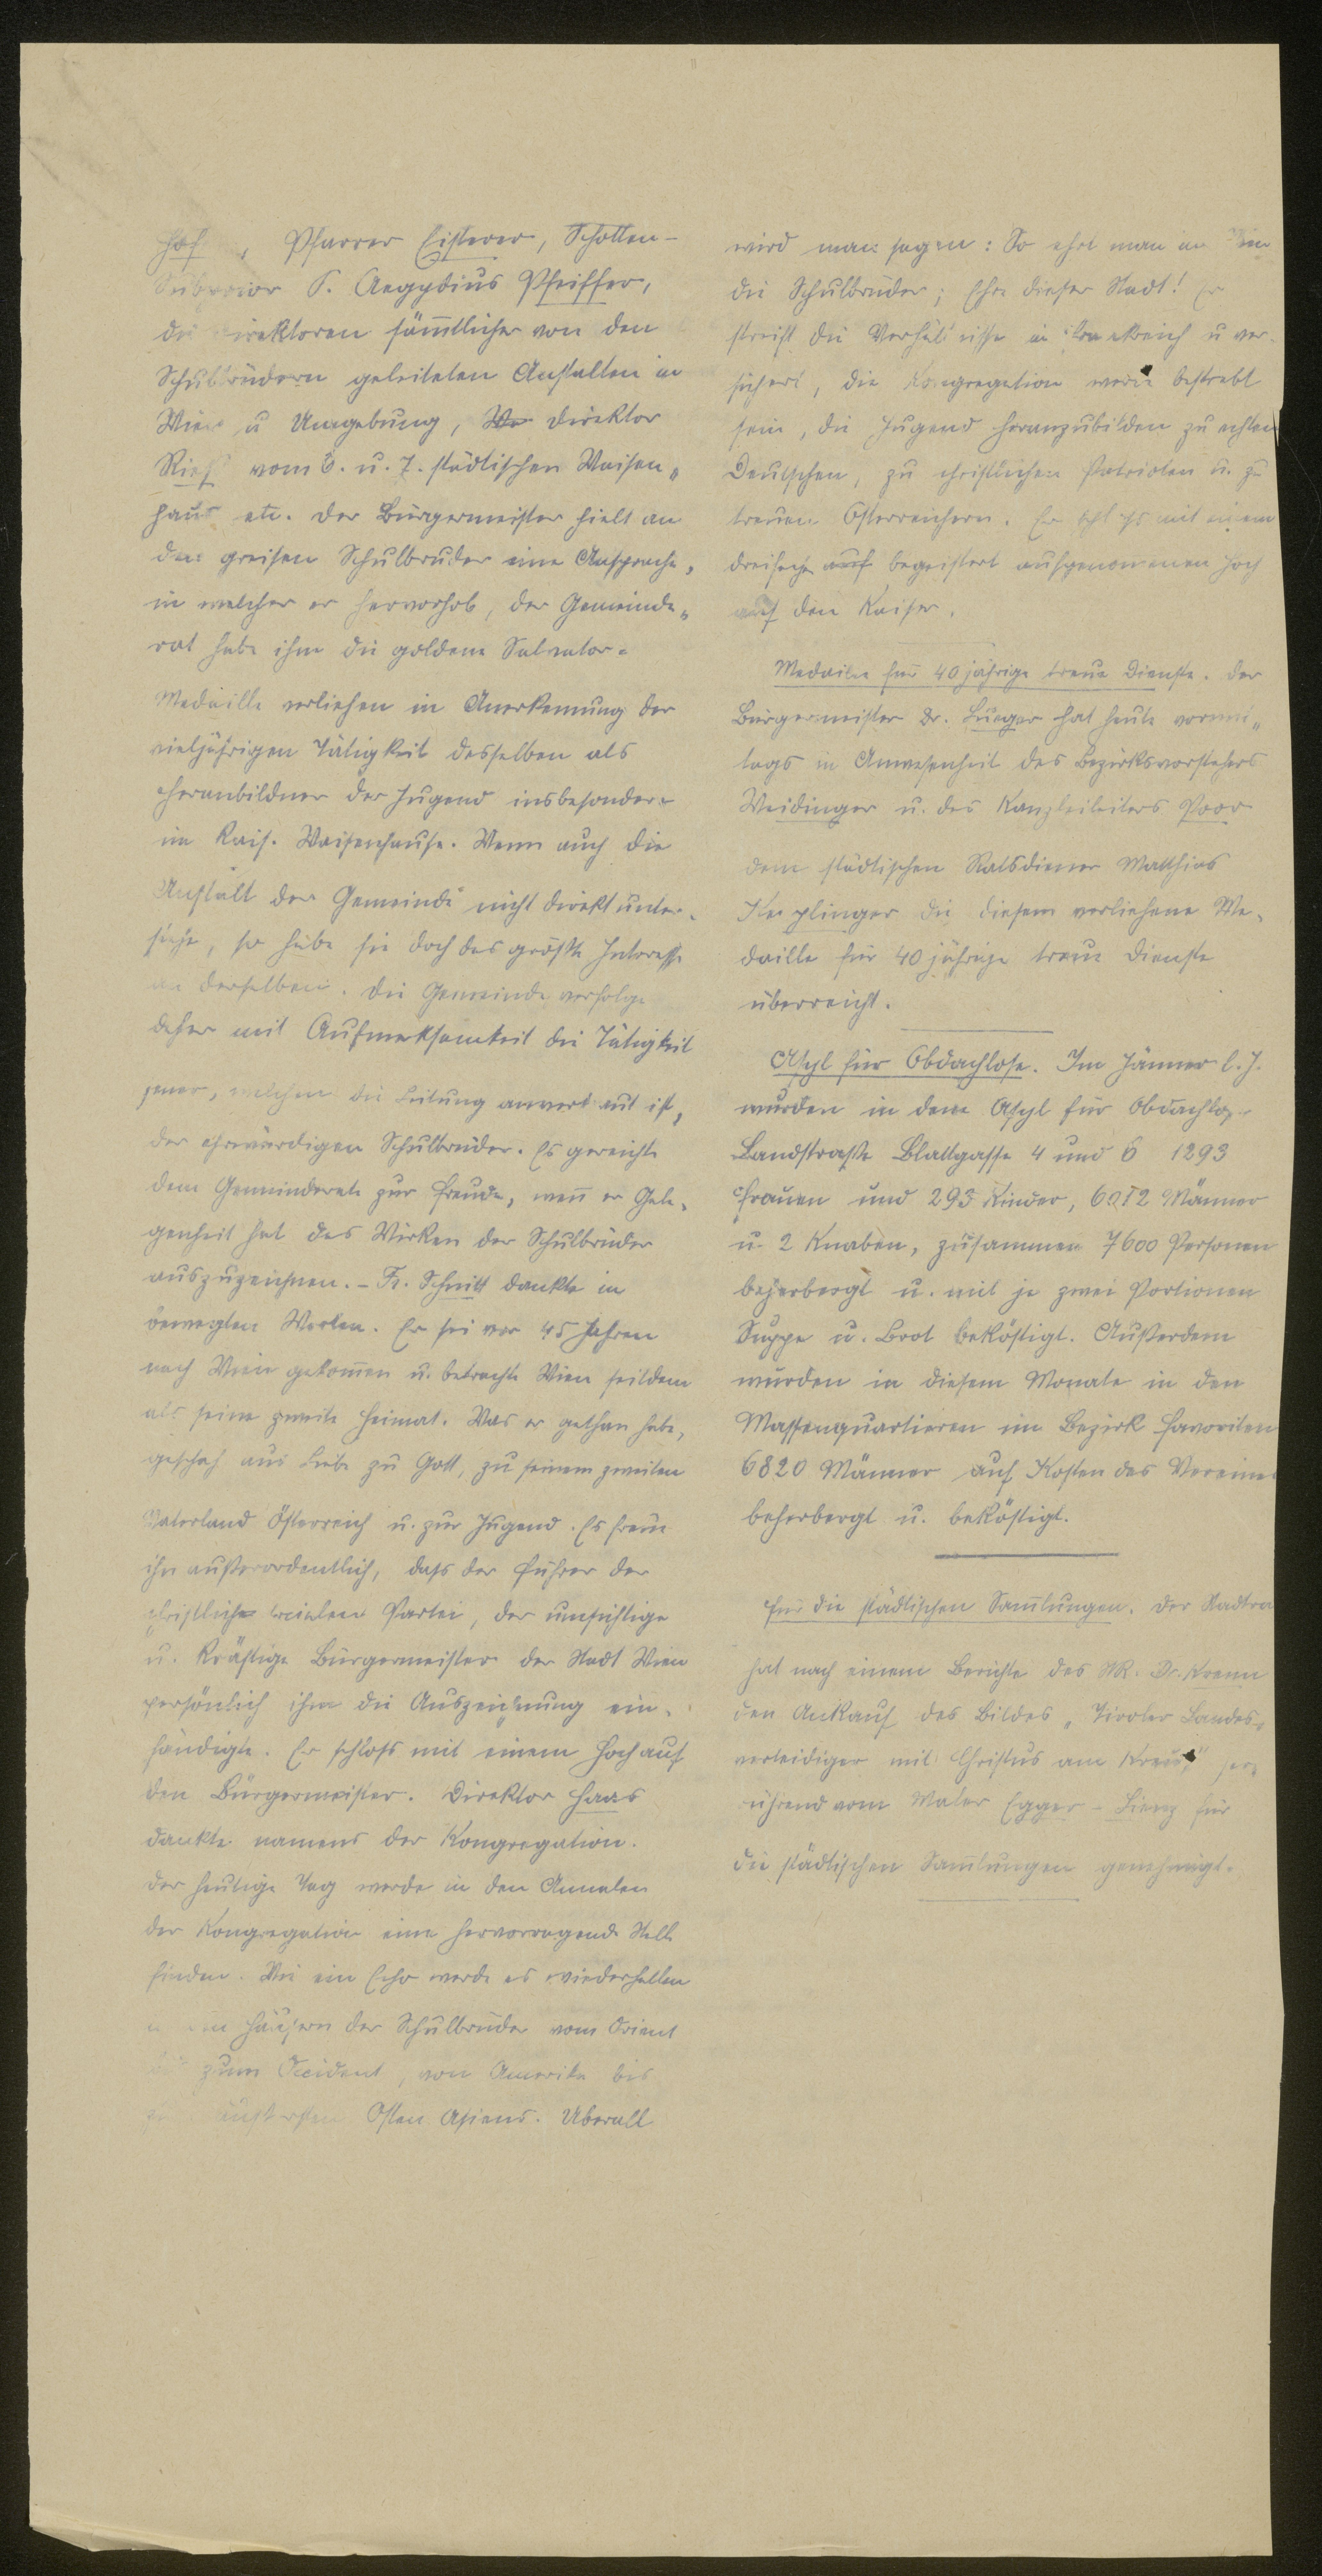 hof, Pfarrer Eisterer, Schotten-
Subprior P. Aegydius Pfeiffer,
die Direktoren säm̄tlicher von den
Schulbrüdern geleiteten Anstalten in
Wien u Umgebung, Direktor
Rieß vom 6. u. 7. städtischen Waisen„
haus etc. Der Bürgermeister hielt an
den greisen Schulbruder eine Ansprache,
in welcher er hervorhob, der Gemeinde„
rat habe ihm die goldene Salvator-
Medaille verliehen in Anerkennung der
vieljährigen Tätigkeit desselben als
Heranbildner der Jugend insbesondere
im Kais. Waisenhause. Wenn auch die
Anstalt der Gemeinde nicht direkt unter-
stehe, so habe sie doch das größte Interesse
an derselben. Die Gemeinde verfolge
daher mit Aufmerksamkeit die Tätigkeit
jener, welchen die Leitung anvertraut ist,
der ehrwürdigen Schulbrüder. Es gereiche
dem Gemeinderate zur Freude, wen̄ er Gele-
genheit hat das Wirken der Schulbrüder
auszuzeichnen. – Fr. Schnitt dankte in
bewegten Worten. Er sei vor 45 Jahren
nach Wien gekom̄en u. betrachte Wien seitdem
als seine zweite Heimat. Was er gethan habe,
geschah aus Liebe zu Gott, zu seinem zweiten
Vaterland Österreich u. zur Jugend. Es freue
ihn außerordentlich, dass der Führer der
christlich sozialen Partei, der umsichtige
u. kräftige Bürgermeister der Stadt Wien
persönlich ihm die Auszeichnung ein-
händigte. Er schloss mit einem Hoch auf
den Bürgermeister. Direktor Haas
dankte namens der Kongregation.
Der heutige Tag werde in den Annalen
der Kongregation eine hervorragende Stelle
finden. Wie ein Echo werde es wiederhallen
in den Häusern der Schulbrüder vom Orient
bis zum Occident, von Amerika bis
zum äußersten Osten Asiens. Überall
wird man sagen: So ehrt man in Wien
die Schulbrüder; Ehre dieser Stadt! Er
streift die Verhältnisse in Frankreich u ver-
sichert, die Kongregation werde bestrebt
sein, die Jugend heranzubilden zu echten
Deutschen, zu christlichen Patrioten u. zu
treuen Österreichern. Er schloss mit einem
dreifachen begeistert aufgenom̄enen Hoch
auf den Kaiser.
Medaille für 40jährige treue Dienste. Der
Bürgermeister Dr. Lueger hat heute vormit„
tags in Anwesenheit des Bezirksvorstehers
Weidinger u. des Kanzleileiters Poor
dem städtischen Ratsdiener Matthias
die diesem verliehene Me-
daille für 40jährige treue Dienste
überreicht.
Asyl für Obdachlose. Im Jänner l. J.
wurden in dem Asyl für Obdachlose
Landstraße Blattgasse 4 und 6 1293
Frauen und 293 Kinder, 6012 Männer
u. 2 Knaben, zusammen 7600 Personen
beherbergt u. mit je zwei Portionen
Suppe u. Brot beköstigt. Außerdem
wurden in diesem Monate in den
Massenquartieren im Bezirk Favoriten
6820 Männer auf Kosten des Vereines
beherbergt u. beköstigt.
Für die städtischen Sam̄lungen. Der Stadtrat
hat nach einem Berichte des StR. Dr. Krenn
den Ankauf des Bildes „Tiroler Landes„
verteidiger mit Christus am Kreuz" her„
rührend vom Maler Egger-Lienz für
die städtischen Sam̄lungen genehmigt.